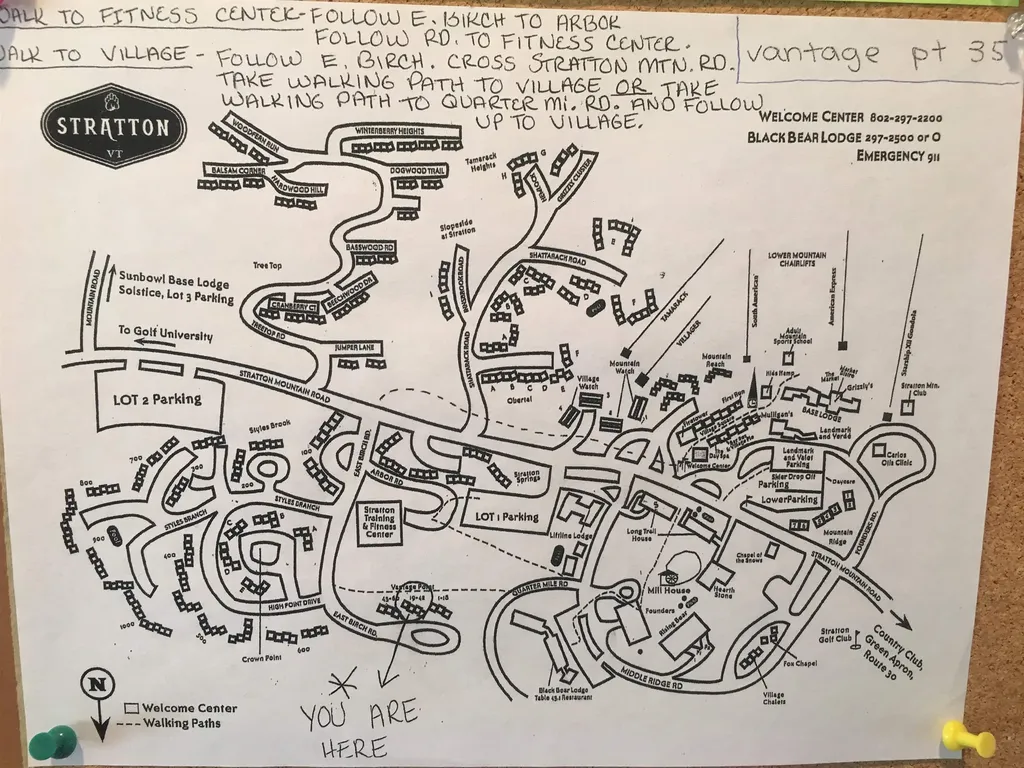 WALK TO FITNESS CENTER - FOLLOW E. BIRCH TO ARBOR
FOLLOW RD. TO FITNESS CENTER.
WALK TO VILLAGE - FOLLOW E. BIRCH. CROSS STRATTON MTN. RD.
TAKE WALKING PATH TO VILLAGE OR TAKE
WALKING PATH TO QUARTER MI. RD. AND FOLLOW
UP TO VILLAGE.
vantage pt 35
STRATTON
VT
WELCOME CENTER 802-297-2200
BLACK BEAR LODGE 297-2500 or 0
EMERGENCY 911
WOODFERN RUN
WINTERBERRY HEIGHTS
BALSAM CORNER
HARDWOOD HILL
DOGWOOD TRAIL
Tamarack
Heights
H
G
HEMLOCK
GRIZZLY CLUSTER
Slopeside
at Stratton
BASSWOOD RD
Tree Top
BEECHWOOD DR
CRANBERRY CT
TREETOP RD
JUMPER LANE
SHATTARACK ROAD
SHATTARACK ROAD
MOUNTAIN ROAD
Sunbowl Base Lodge
Solstice, Lot 3 Parking
To Golf University
LOWER MOUNTAIN
CHAIRLIFTS
TAMARACK
VILLAGER
South American
American Express
Starship XII Gondola
Adult
Mountain
Sports School
Kids Kamp
The
Market
Grizzly's
BASE LODGE
Stratton Mtn.
Club
Mountain
Watch
Mountain
Reach
Village
Watch
A B C D E
Obertal
F
First Run
Village Square
Mulligan's
Landmark
and Verdé
Welcome Center
Landmark
and Valet
Parking
Skier Drop Off
Parking
Lower Parking
Daycare
Carlos
Otis Clinic
Mountain
Ridge
FOUNDERS RD.
STRATTON MOUNTAIN ROAD
LOT 2 Parking
Styles Brook
700
800
900
1000
200
100
400
500
600
STYLES BRANCH
STYLES BRANCH
EAST BIRCH RD.
ARBOR RD
Stratton
Springs
LOT 1 Parking
Stratton
Training
& Fitness
Center
Liftline Lodge
Long Trail
House
Chapel of
the Snows
STRATTON MOUNTAIN ROAD
Mill House
Hearth
Stone
Founders
Rising Bear
QUARTER MILE RD
HIGH POINT DRIVE
EAST BIRCH RD.
Vantage Point
19-42
1-18
Crown Point
Black Bear Lodge
Table 43.1 Restaurant
MIDDLE RIDGE RD
Village
Chalets
Fox Chapel
Stratton
Golf Club
Country Club,
Green Apron,
Route 30
N
Welcome Center
Walking Paths
YOU ARE
HERE